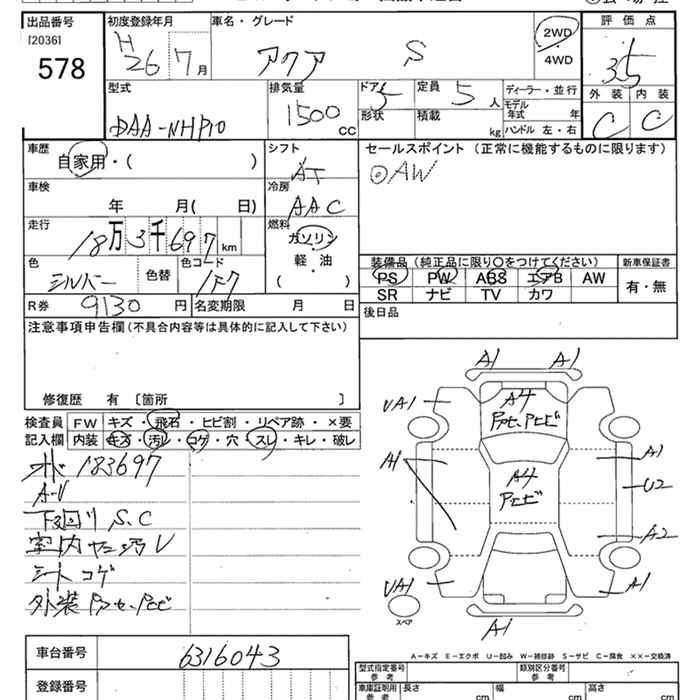 出品番号 初度登録年月 車名・グレード 評価点
[2036] 578
H 26 7月 アクア S 2WD 4WD 3.5
型式 排気量 ドア 定員 ディーラー・並行 外装 内装
DAA-NHP10 1500 CC 5 5人 モデル年式 年 C C
形状 積載 kg ハンドル 左・右
車歴 シフト セールスポイント（正常に機能するものに限ります）
自家用・（ ） AT ◎AW
車検 冷房
年 月（ 日） AAC
走行 燃料
18万3千697km ガソリン
軽・油
（ ）
色 色替 色コード 装備品（純正品に限り○をつけてください） 新車保証書
シルバー 1F7 PS PW ABS エアB AW 有・無
SR ナビ TV カワ
R券 9130円 名変期限 月 日 後日品
注意事項申告欄（不具合内容等は具体的に記入して下さい）
修復歴 有 〔箇所 〕
検査員記入欄 FW キズ・飛石・ヒビ割・リペア跡・×要
内装 キズ・汚レ・コゲ・穴・スレ・キレ・破レ
183697
A-U
下回り S.C
室内 ヤニ汚レ
シート コゲ
外装
A1 A1
UA1 A4
A1 A4 A1
U2
A2
UA1 A1
スペア A1
A－キズ E－エクボ U－凹み W－補修跡 S－サビ C－腐食 ××－交換済
車台番号 6316043
登録番号
型式指定番号 参考 類別区分番号 参考
車庫証明用 参考 長さ cm 幅 cm 高さ cm